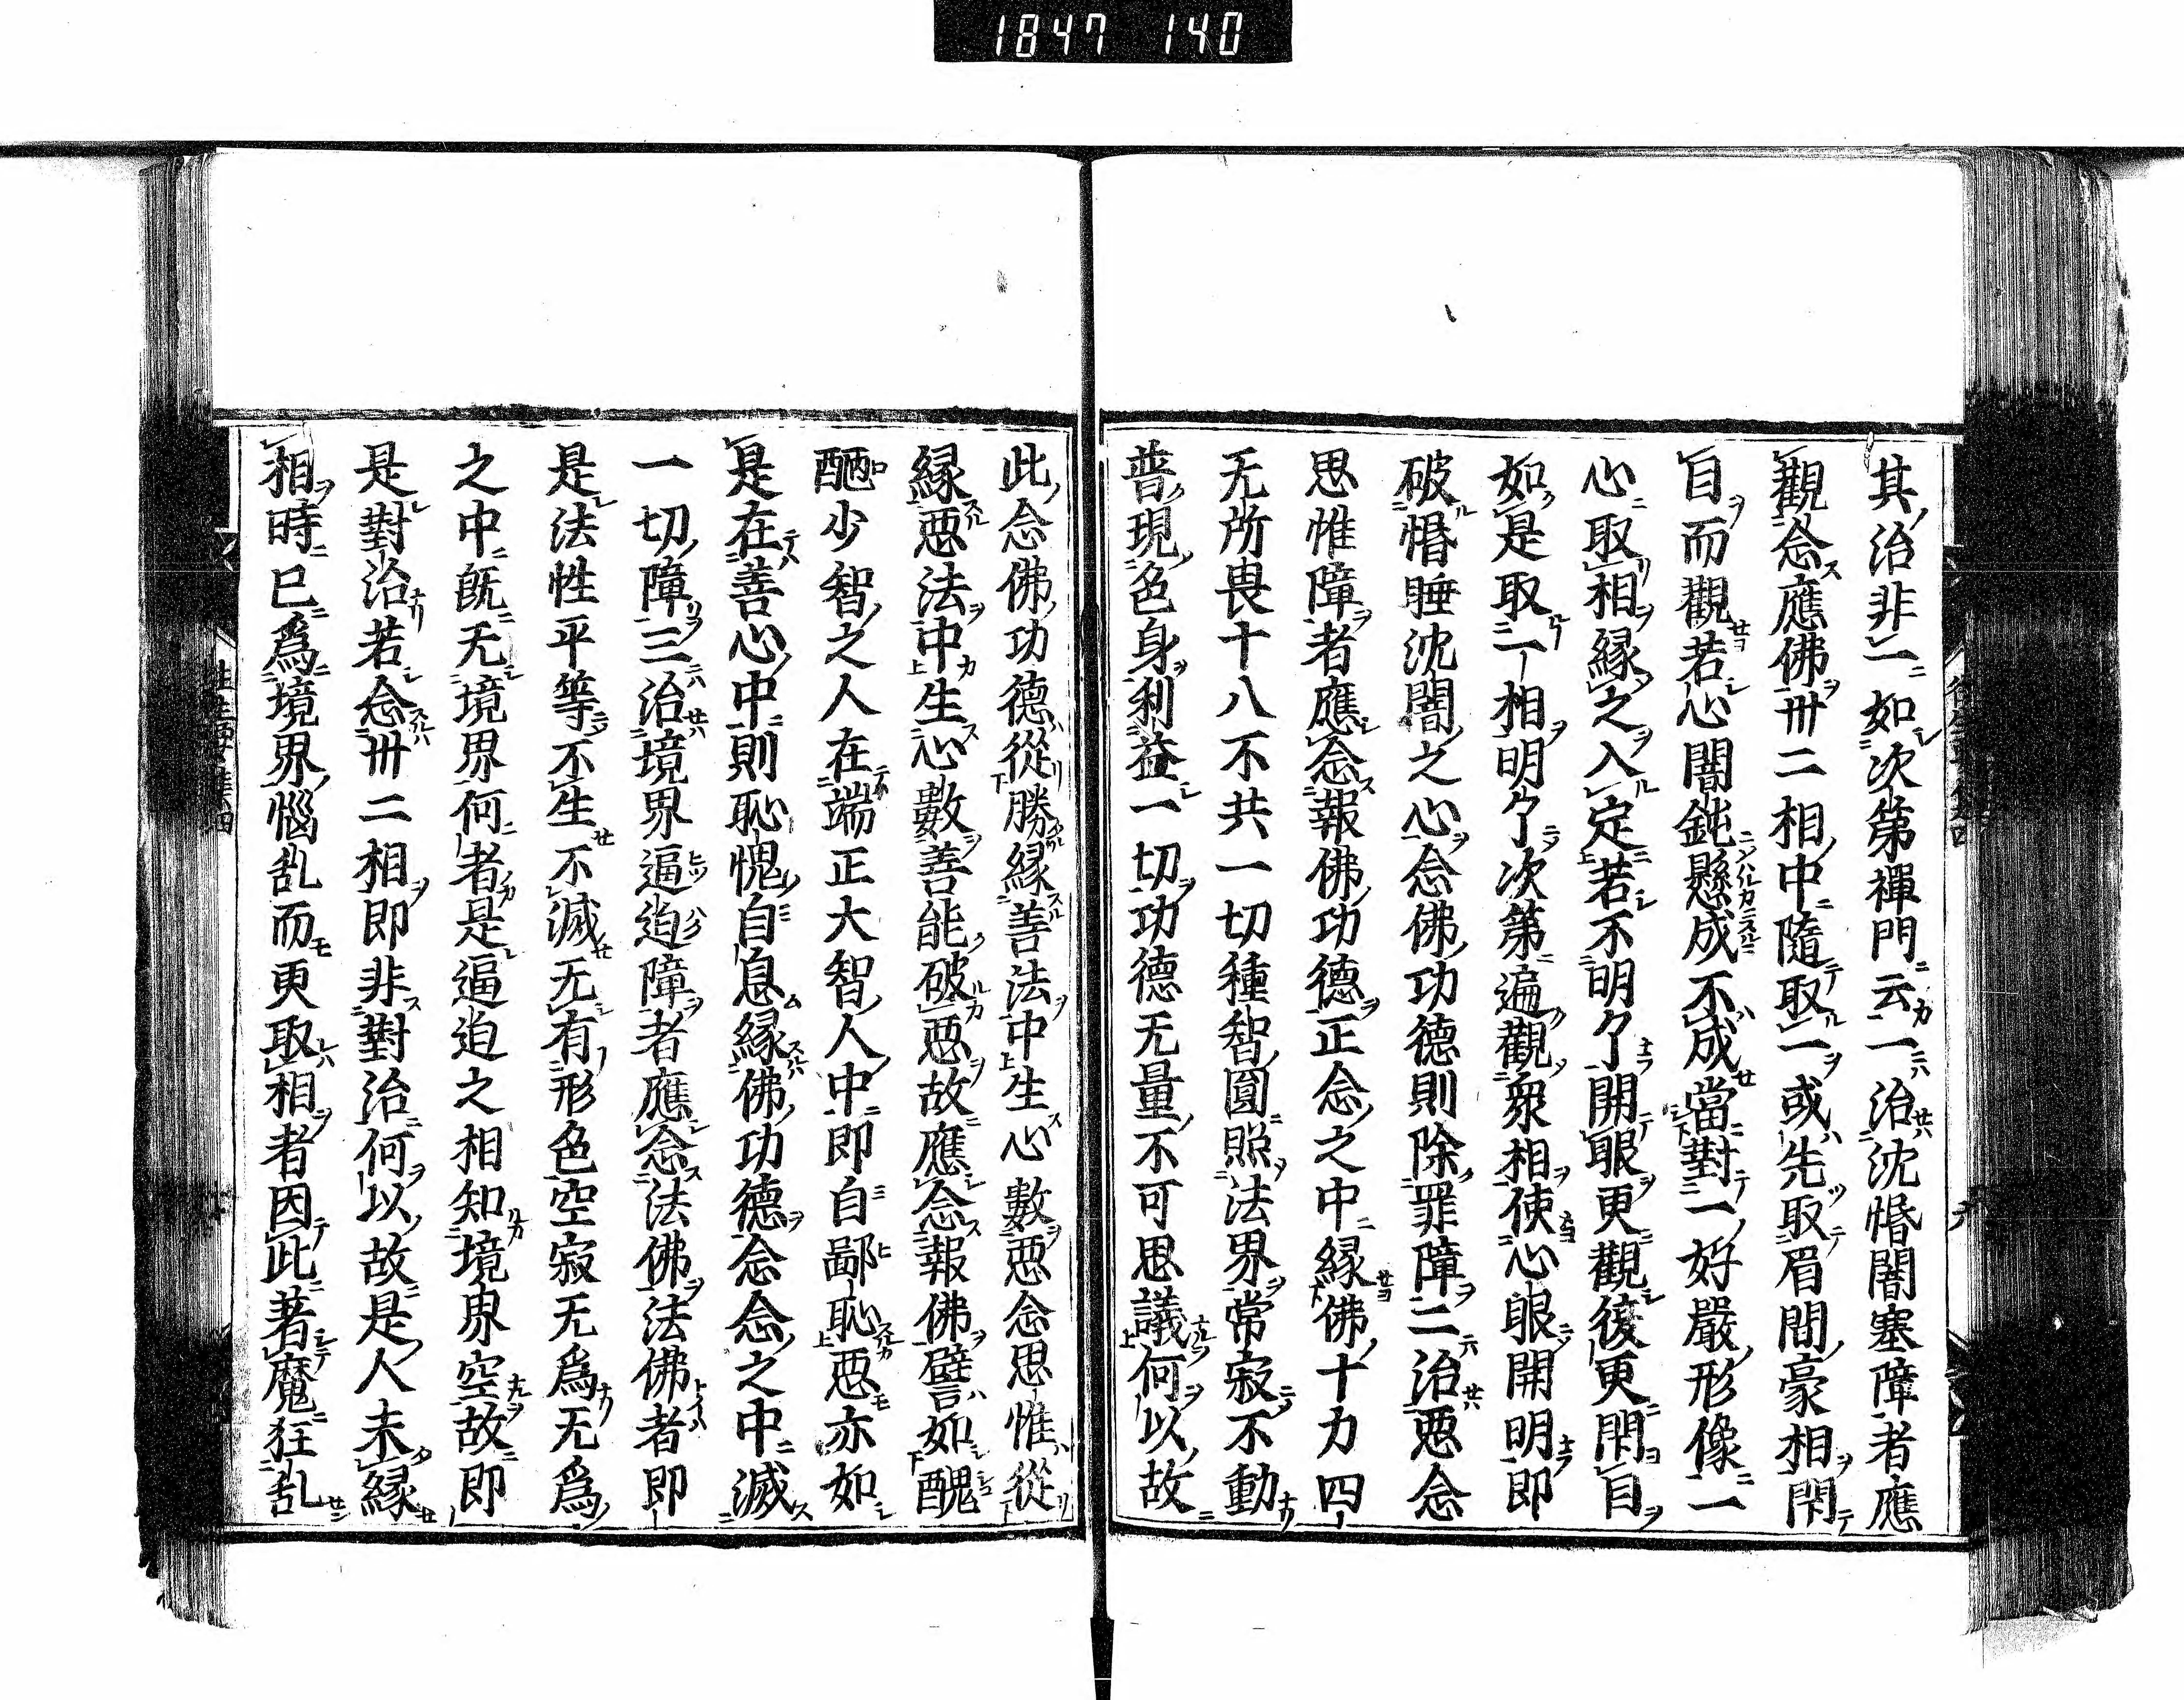 1847 140
其治非一如次第禪門云一治沈惛闇塞障者應
觀念應佛卅二相中隨取一或先取眉間豪相閇
目而觀若心闇鈍懸成不成當對一好嚴形像一
心取相縁之入定若不明了開眼更觀復更閇目
如是取一相明了次第遍觀衆相使心眼開明即
破惛睡沈闇之心念佛功德則除罪障二治惡念
思惟障者應念報佛功德正念之中縁佛十力四
无所畏十八不共一切種智圓照法界常寂不動
普現色身利益一切功德无量不可思議何以故
此念佛功德從勝縁善法中生心數惡念思惟從
縁惡法中生心數善能破惡故應念報佛譬如醜
陋少智之人在端正大智人中即自鄙恥惡亦如
是在善心中則恥愧自息縁佛功德念念之中滅
一切障三治境界逼迫障者應念法佛法佛者即
是法性平等不生不滅无有形色空寂无爲无爲
之中既无境界何者是逼迫之相知境界空故即
是對治若念卅二相即非對治何以故是人未縁
相時已爲境界惱乱而更取相者因此著魔狂乱